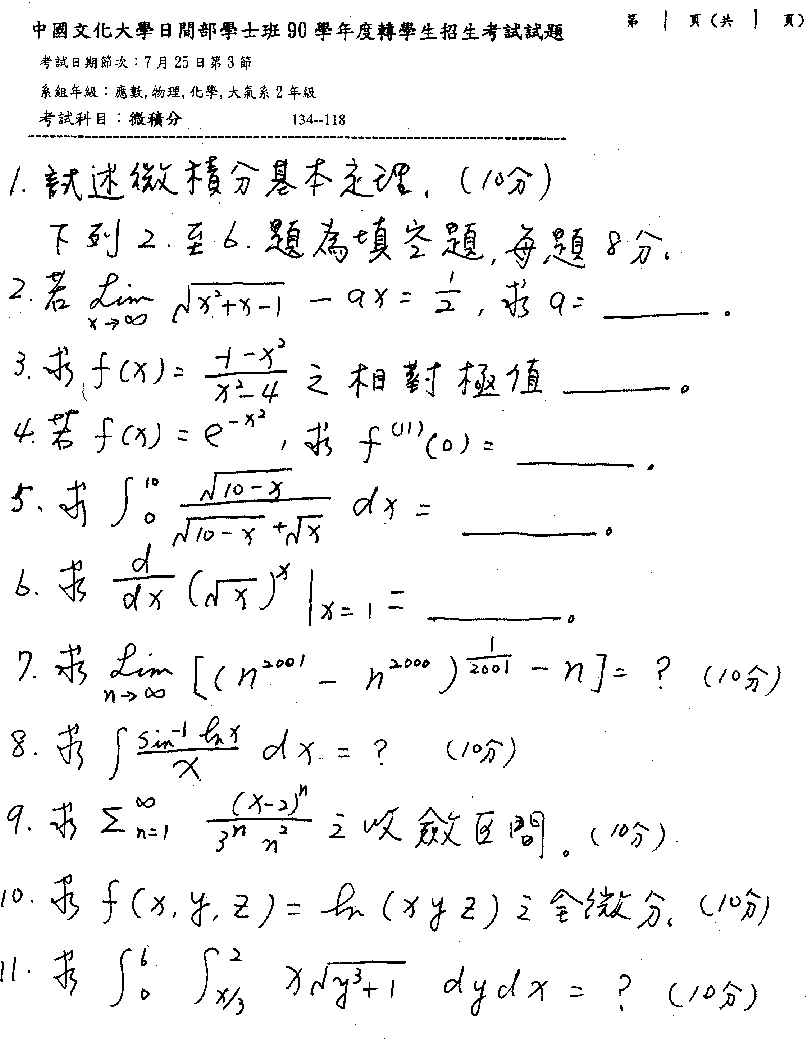 中國文化大學日間部學士班90學年度轉學生招生考試試題 第 1 頁(共 1 頁)
考試日期節次：7月25日第3節
系組年級：應數,物理,化學,大氣系2年級
考試科目：微積分 134--118
1. 試述微積分基本定理. (10分)
下列 2. 至 6. 題為填空題, 每題 8分.
2. 若 Lim x→∞ √(x²+x-1) - ax = 1/2, 求 a= ______.
3. 求 f(x) = (-1-x²)/(x²-4) 之相對極值 ______。
4. 若 f(x) = e^(-x²), 求 f^(11)(0) = ______.
5. 求 ∫₀¹⁰ √(10-x)/(√(10-x)+√x) dx = ______。
6. 求 d/dx (√x)^x |x=1 = ______。
7. 求 Lim n→∞ [(n^2001 - n^2000)^(1/2001) - n] = ? (10分)
8. 求 ∫ (sin⁻¹ ln x)/x dx = ? (10分)
9. 求 Σ n=1 ∞ (x-2)^n/(3^n n²) 之收斂区間。(10分)
10. 求 f(x, y, z) = ln (xyz) 之全微分. (10分)
11. 求 ∫₀⁶ ∫ x/3 2 x√(y³+1) dydx = ? (10分)